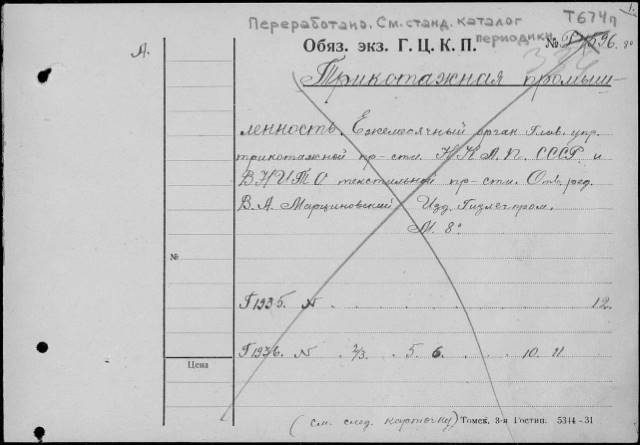 Переработано. См. станд. каталог
периодики
Т674п
1.
А.
Обяз. экз. Г. Ц. К. П.
№
96. 8°
Трикотажная промыш-
ленность. Ежемесячный орган Глав. упр.
трикотажной пр-сти. НКЛП. СССР и
ВНИТО текстильной пр-сти. Отв. ред.
В. А. Марциновский Изд. Гизлегпром.
М. 8°
№
Г 1935. N . . . . . . . . . . . 12.
Г 1936. N . 2/3. . 5 6. . . . 10. 11
Цена
(см. след. карточку) Томск, 3-я Гостип. 5344-31